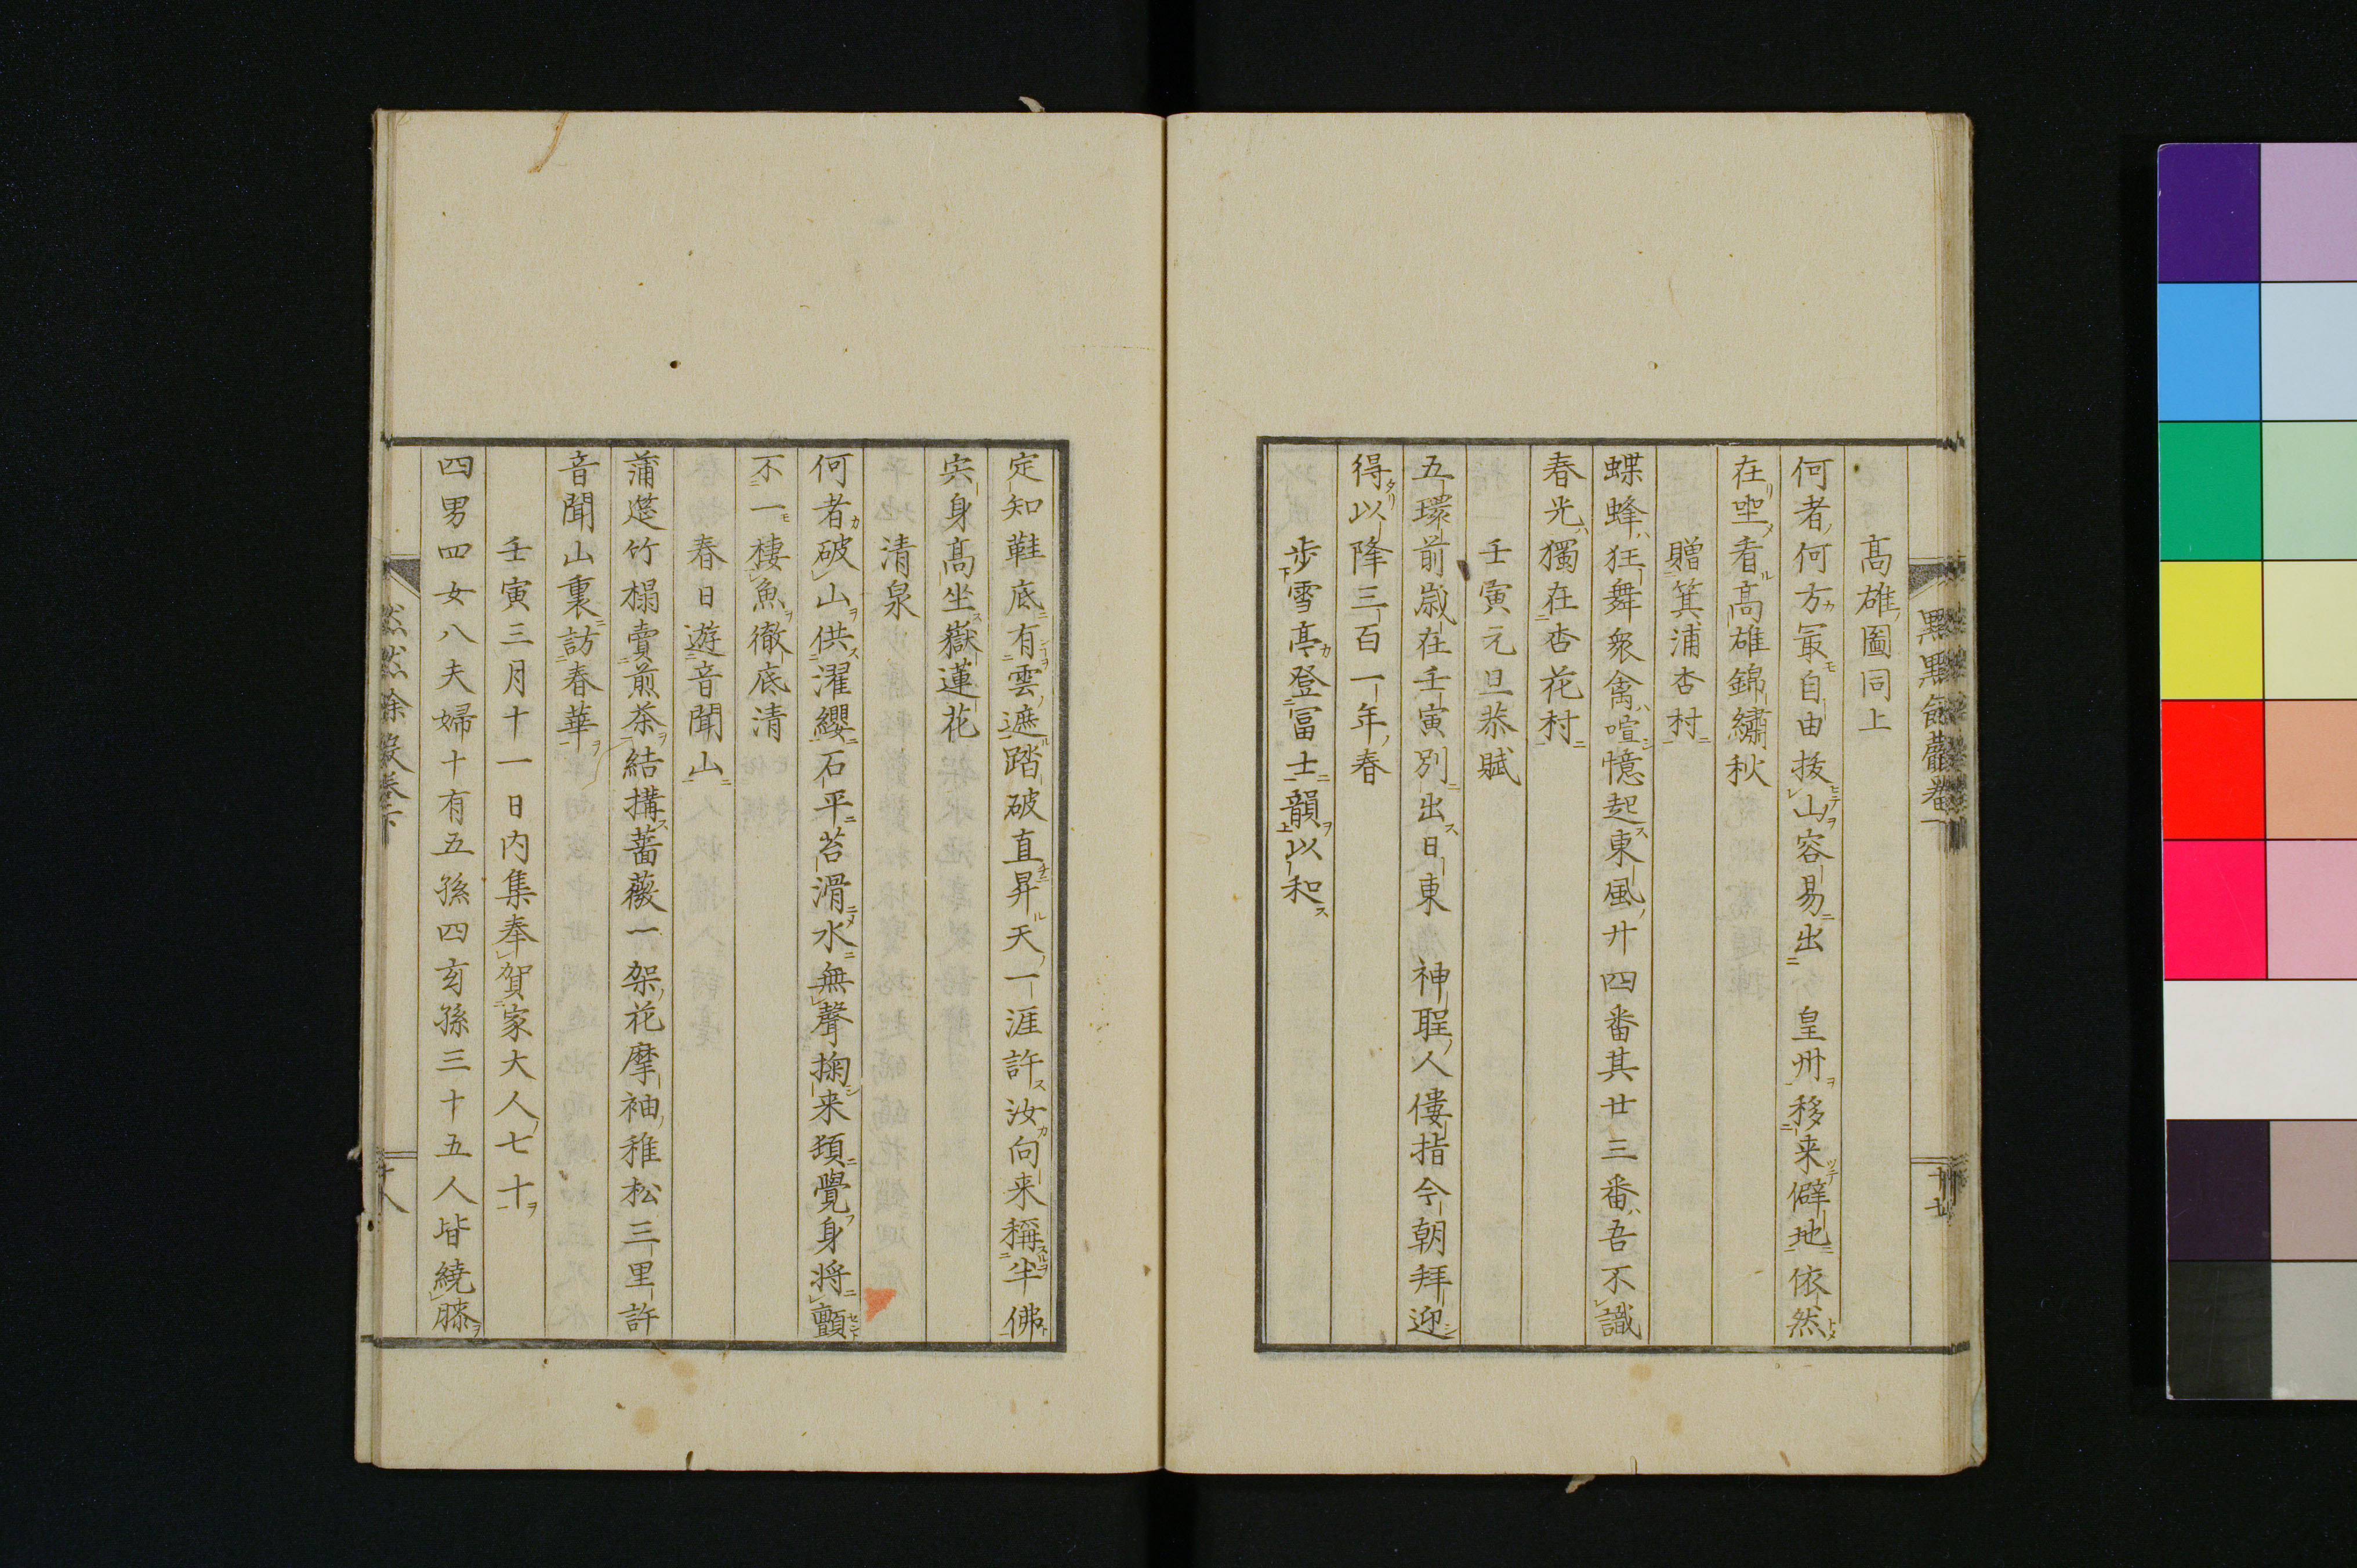 高雄圖同上
何者何方冣自由拔山容易出　皇州移来僻地依然
在坐看高雄錦繡秋
贈箕浦杏村
蝶蜂狂舞衆禽喧憶起東風廾四番其廿三番吾不識
春光獨在杏花村
壬寅元旦恭賦
五環前歳在壬寅別出日東　神聖人僂指今朝拜迎
得以降三百一年春
步雪亭登冨士韻以和
定知鞋底有雲遮踏破直昇天一涯許汝向来稱半佛
宍身高坐嶽蓮花
清泉
何者破山供濯纓石平苔滑水無聲掬来頚覺身將顫
不一棲魚徹底清
春日遊音聞山
蒲莚竹榻賣煎茶結搆薔薇一架花摩袖稚松三里許
音聞山裏訪春華
壬寅三月十一日内集奉賀家大人七十
四男四女八夫婦十有五孫四玄孫三十五人皆繞膝